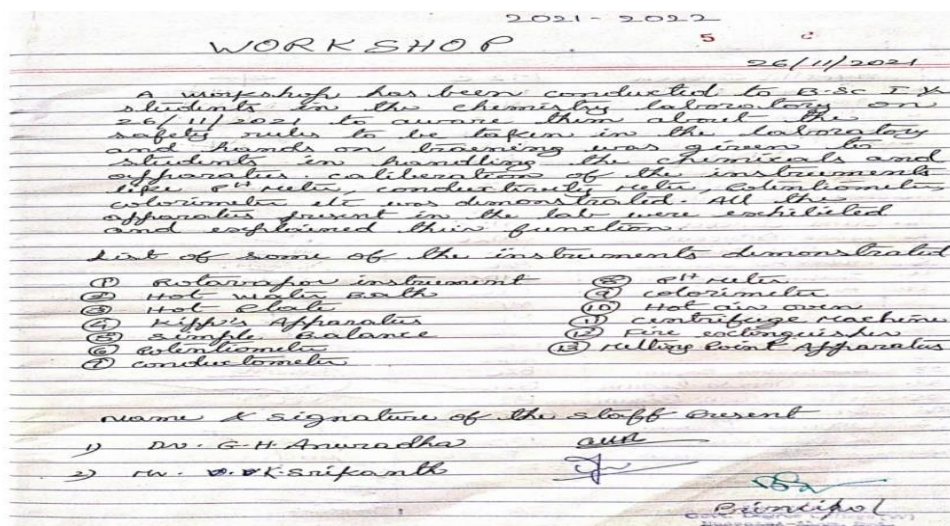 2021-2022
WORKSHOP
5
26/11/2021
A workshop has been conducted to B.Sc I Yr
students in the chemistry laboratory on
26/11/2021 to aware them about the
safety rules to be taken in the laboratory
and hands on training was given to
students in handling the chemicals and
apparatus. caliberation of the instruments
like PH Meter, conductivity Meter, Potentiometer,
colorimeter etc was demonstrated. All the
apparatus present in the lab were exhibited
and explained their function.
List of some of the instruments demonstrated
① Rotavapor instrument
② Hot Water Bath
③ Hot Plate
④ Kipp's Apparatus
⑤ Simple Balance
⑥ Potentiometer
⑦ conductometer
⑧ PH Meter
⑨ colorimeter
⑩ Hot air oven
⑪ centrifuge Machine
⑫ Fire extinguisher
⑬ Melting Point Apparatus
Name & Signature of the Staff Present
1) Dr. G.H. Anuradha
2) Mr. K. Srikanth
Principal